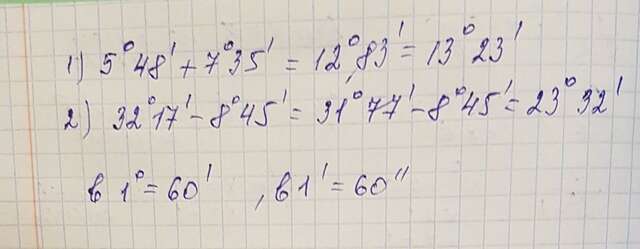 1) 5°48' + 7°35' = 12°83' = 13°23'
2) 32°17' - 8°45' = 31°77' - 8°45' = 23°32'
в 1° = 60' , в 1' = 60''